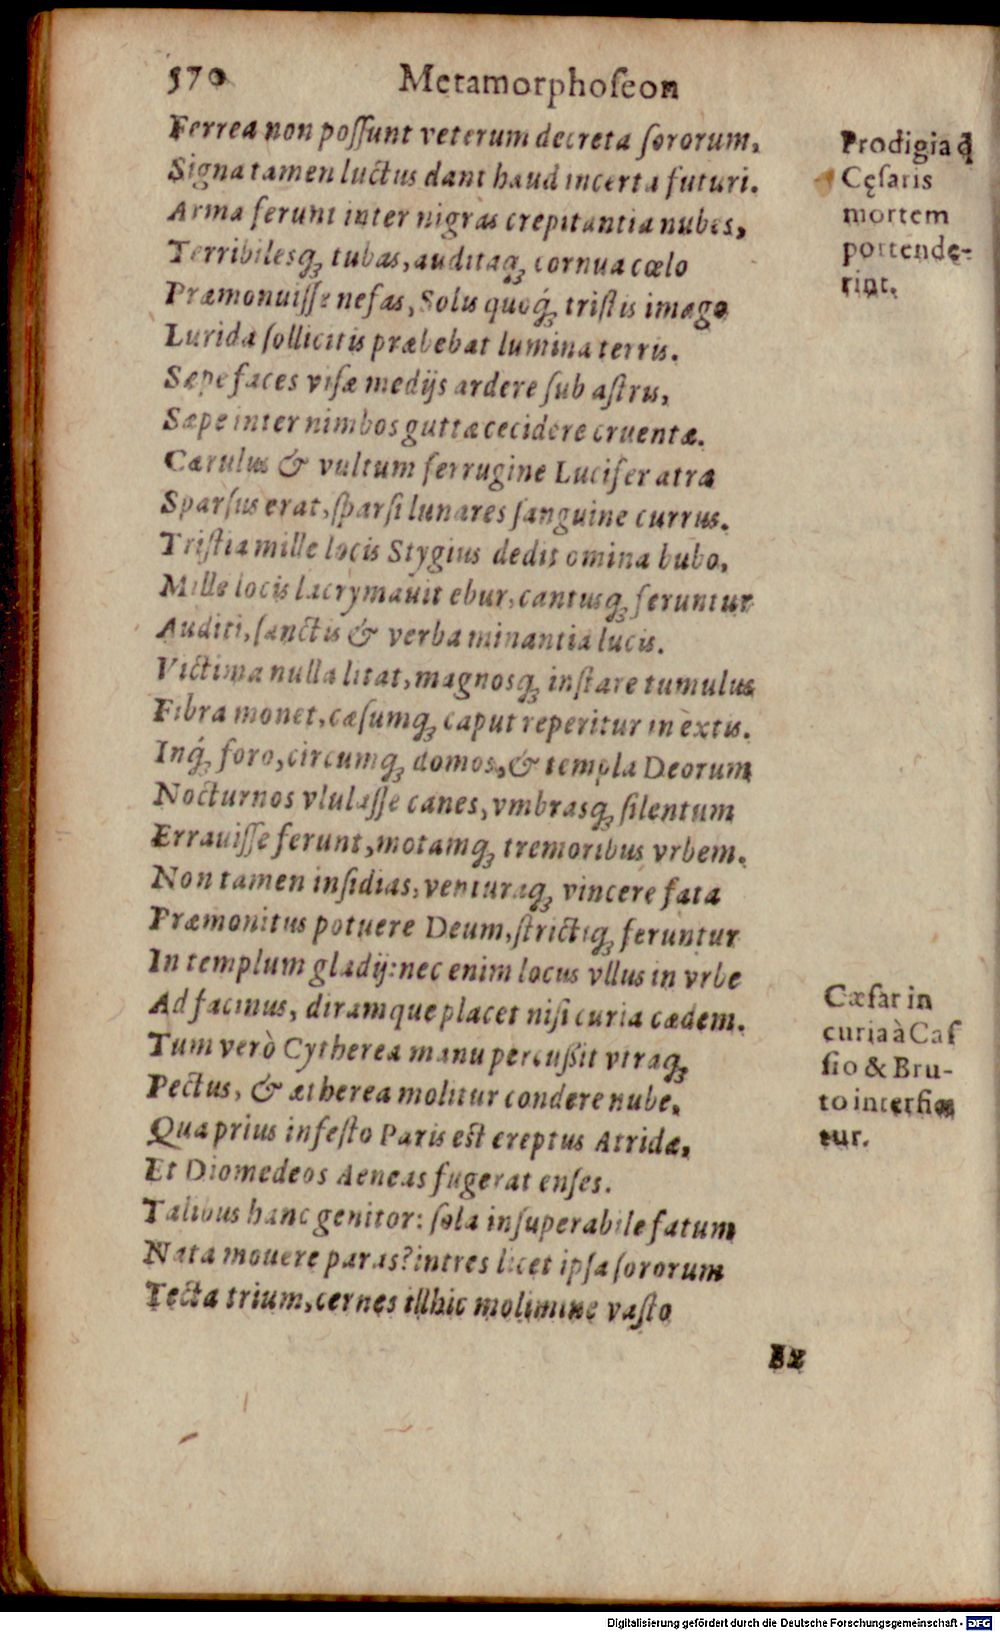 570 Metamorphoſeon
Ferrea non poſſunt veterum decreta ſororum,
Signa tamen luctus dant haud incerta futuri.
Arma ferunt inter nigras crepitantia nubes,
Terribilesq́ꝫ tubas, auditaqꝫ cornua cœlo
Præmonuiſſe nefas, Solis quoq́ꝫ triſtis imago
Lurida ſollicitis præbebat lumina terris.
Sæpe faces viſæ medijs ardere ſub aſtris,
Sæpe inter nimbos guttæ cecidere cruentæ.
Cærulus & vultum ferrugine Lucifer atra
Sparſus erat, ſparſi lunares ſanguine currus.
Triſtia mille locis Stygius dedit omina bubo,
Mille locis lacrymauit ebur, cantusqꝫ feruntur
Auditi, ſanctis & verba minantia lucis.
Victima nulla litat, magnosqꝫ inſtare tumulus
Fibra monet, cæſumqꝫ caput reperitur in extis.
Inq́ꝫ foro, circumqꝫ domos, & templa Deorum
Nocturnos vlulaſſe canes, vmbrasqꝫ ſilentum
Errauiſſe ferunt, motamqꝫ tremoribus vrbem.
Non tamen inſidias, venturaqꝫ vincere fata
Præmonitus potuere Deum, ſtrictiqꝫ feruntur
In templum gladij: nec enim locus vllus in vrbe
Ad facinus, diramque placet niſi curia cædem.
Tum verò Cytherea manu percuſsit vtraqꝫ
Pectus, & ætherea molitur condere nube,
Qua prius infeſto Paris eſt ereptus Atridæ,
Et Diomedeos Aeneas fugerat enſes.
Talibus hanc genitor: ſola inſuperabile fatum
Nata mouere paras? intres licet ipſa ſororum
Tecta trium, cernes illhic molimine vaſto
Prodigia q̄
Cęſaris
mortem
portendę-
rint.
Cæſar in
curia à Caſ
ſio & Bru-
to interfici
tur.
Ex
Digitalisierung gefördert durch die Deutsche Forschungsgemeinschaft - DFG